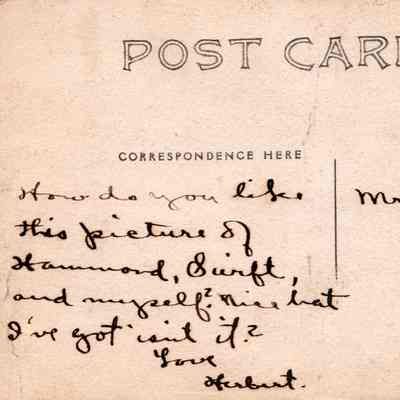 POST CAR
CORRESPONDENCE HERE
How do you like
this picture of
Hammond, Swift,
and myself? Nice hat
I've got isn't it?
Love
Herbert.
Mr